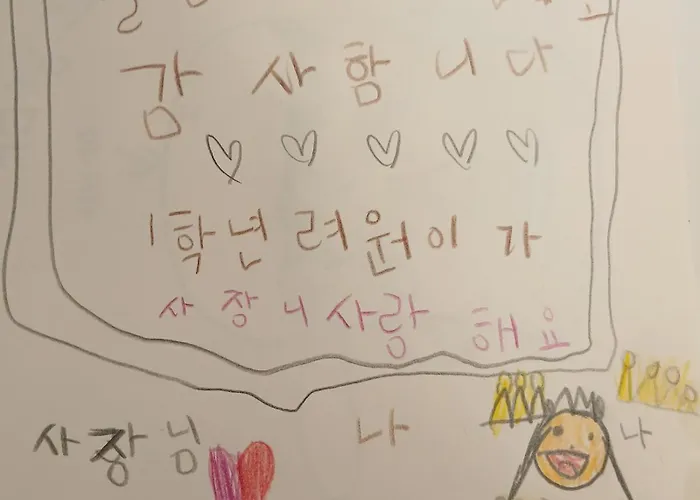 감사합니다
1학년 려원이가
사장니 사랑해요
사장님 나 나